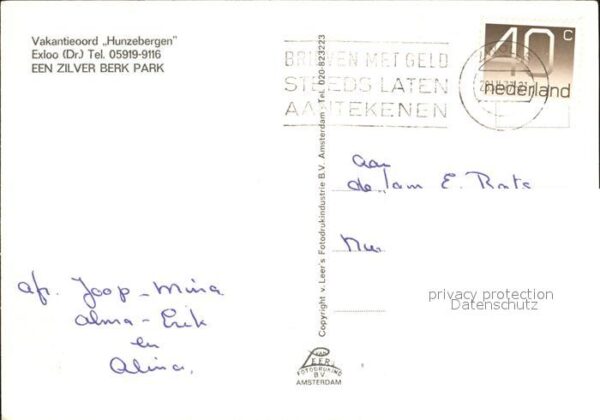 Vakantieoord „Hunzebergen"
Exloo (Dr.) Tel. 05919-9116
EEN ZILVER BERK PARK
BRIEVEN MET GELD
STEEDS LATEN
AANTEKENEN
40 c
nederland
aan
de fam E.
afz. Joop - Mina
alma - Erik
en
Alina.
Copyright v. Leer's Fotodrukindustrie B.V. Amsterdam - Tel. 020-823223
VAN
LEER'S
FOTODRUKIND
B.V.
AMSTERDAM
privacy protection
Datenschutz